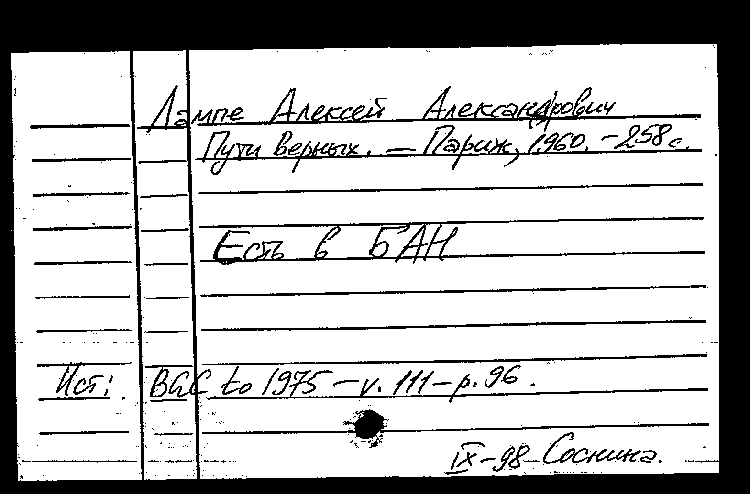 Лампе Алексей Александрович
Пути верных. — Париж, 1960. - 258 с.
Есть в БАН
Ист: BGC to 1975 - v. 111 - p. 96.
IX-98 Соснина.